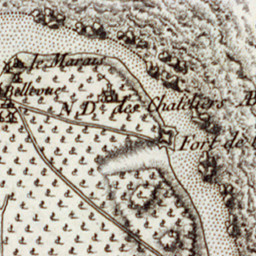 le Marais
Bellevue
N. D. des Chateliers
Fort de